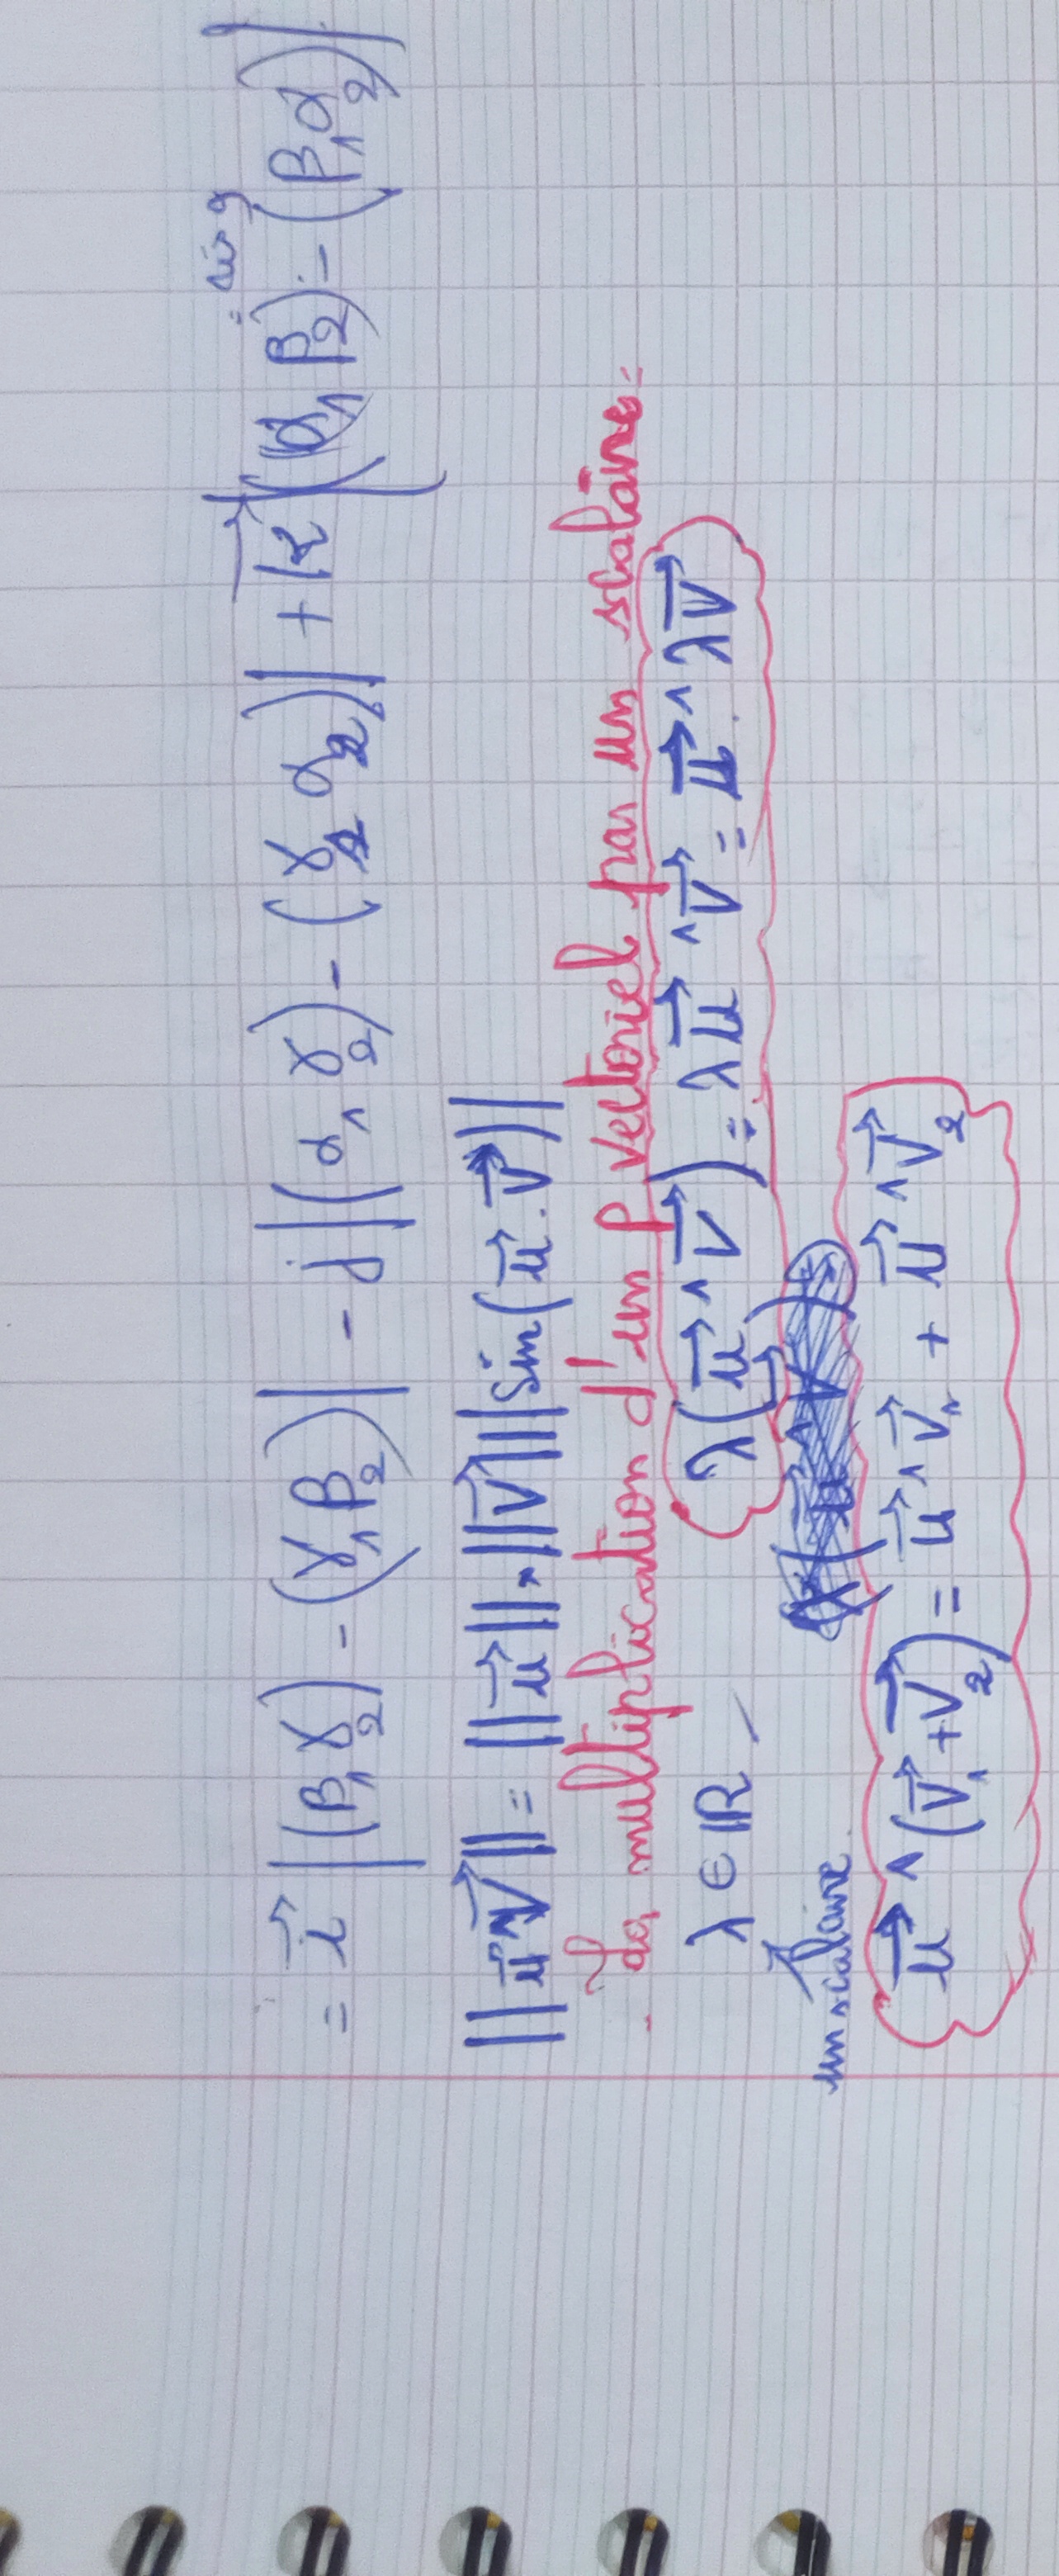 = i⃗ |(β₁γ₂) - (γ₁β₂)| - j |(α₁γ₂) - (γ₂α₂)| + k⃗ |(α₁β₂) - (β₁α₂)|
||u⃗∧v⃗|| = ||u⃗||.||v⃗|| |sin(u⃗.v⃗)||
- La multiplication d'un p vectoriel par un scalaire =
λ ∈ ℝ / λ(u⃗ ∧ v⃗) = λu⃗ ∧ v⃗ = u⃗ ∧ λv⃗
un scalaire
u⃗ ∧ (v⃗₁ + v⃗₂) = u⃗ ∧ v⃗₁ + u⃗ ∧ v⃗₂